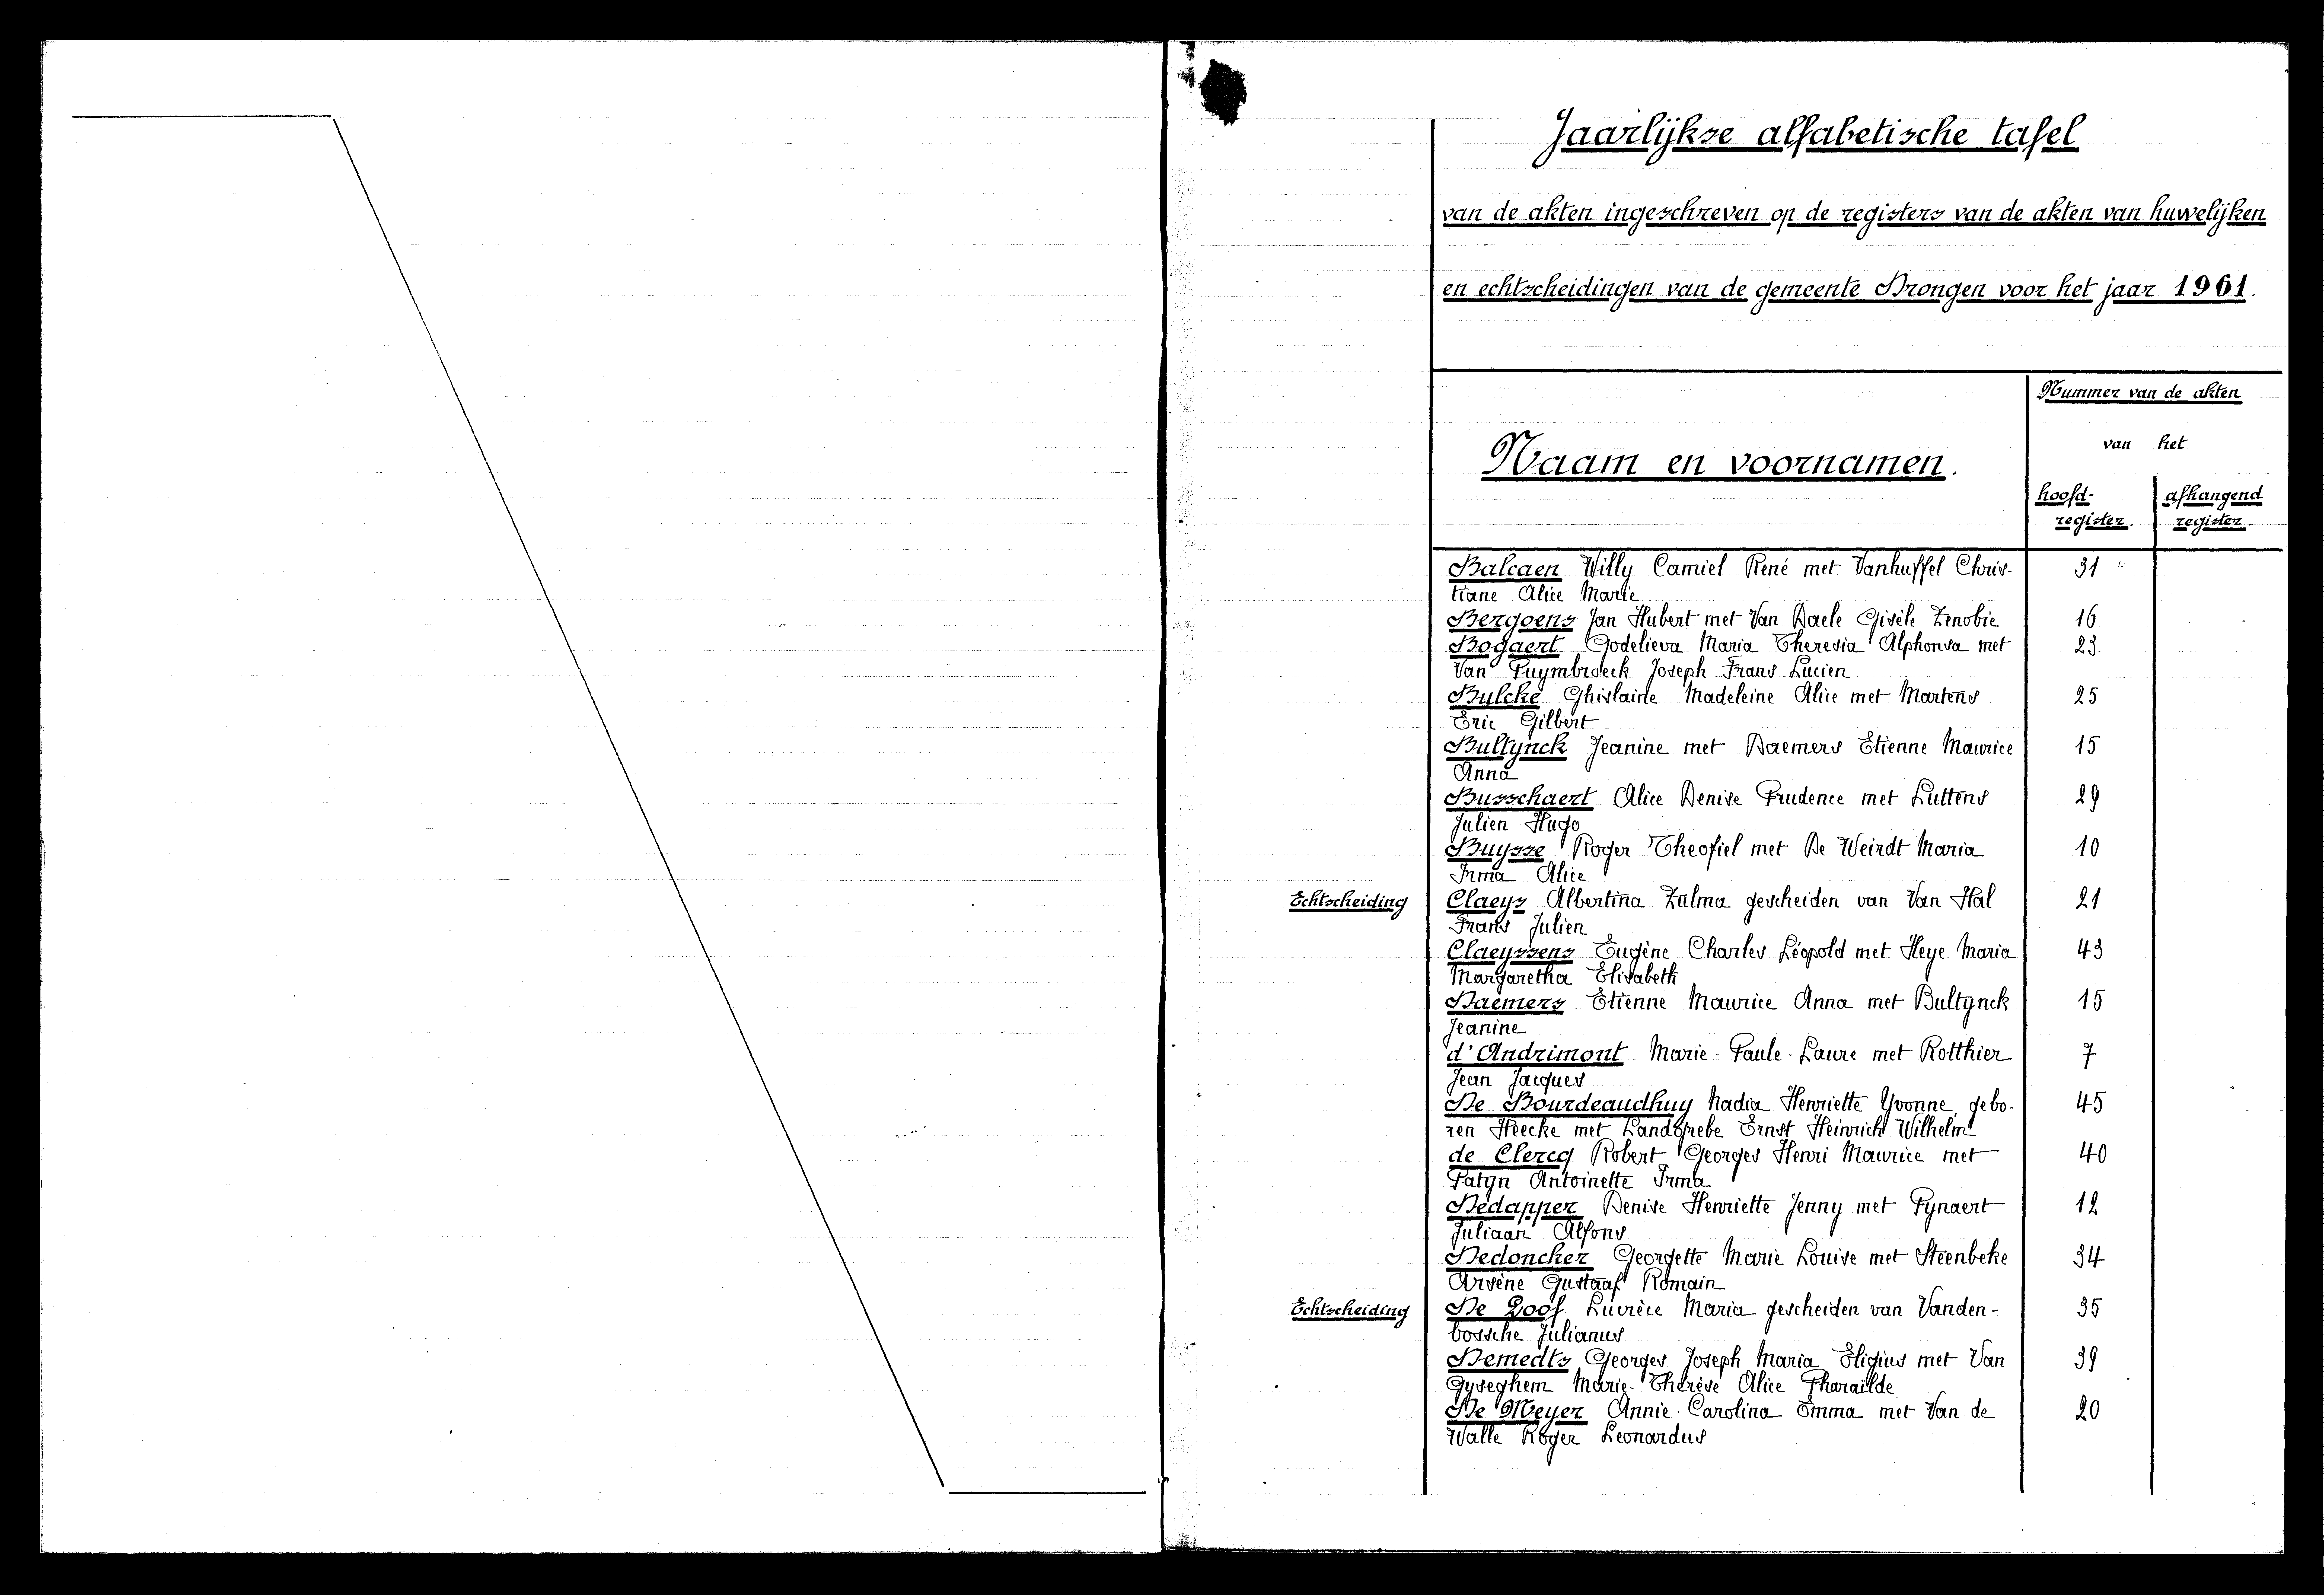 Jaarlijkse alfabetische tafel
van de akten ingeschreven op de registers van de akten van huwelijken
en echtscheidingen van de gemeente Drongen voor het jaar 1961.
Nummer van de akten
van het
Naam en voornamen.
hoofd-
register.
afhangend
register.
Balcaen Willy Camiel René met Vanhuffel Chris- 31
tiane Alice Marie
Bergoens Jan Hubert met Van Daele Gisèle Zenobie 16
Bogaert Godelieva Maria Theresia Alphonsa met 23
Van Puymbroeck Joseph Frans Lucien
Bulcke Ghislaine Madeleine Alice met Martens 25
Eric Gilbert
Bultynck Jeanine met Daemers Etienne Maurice 15
Anna
Busschaert Alice Denise Prudence met Luttens 29
Julien Hugo
Buysse Roger Theofiel met De Weirdt Maria 10
Irma Alice
Echtscheiding Claeys Albertina Zulma gescheiden van Van Hal 21
Frans Julien
Claeyssens Eugène Charles Léopold met Heye Maria 43
Margaretha Elisabeth
Daemers Etienne Maurice Anna met Bultynck 15
Jeanine
d'Andrimont Marie-Paule-Laure met Rotthier 7
Jean Jacques
De Bourdeaudhuy Nadia Henriette Yvonne, gebo- 45
ren Heecke met Landgrebe Ernst Heinrich Wilhelm
de Clercq Robert Georges Henri Maurice met 40
Patyn Antoinette Irma
Dedapper Denise Henriette Jenny met Pynaert 12
Juliaan Alfons
Dedoncker Georgette Marie Louise met Steenbeke 34
Arsène Gustaaf Romain
Echtscheiding De Loof Lucrèce Maria gescheiden van Vanden- 35
bossche Julianus
Demedts Georges Joseph Maria Eligius met Van 39
Gyseghem Marie-Thérèse Alice Pharaïlde
De Meyer Annie-Carolina Emma met Van de 20
Walle Roger Leonardus